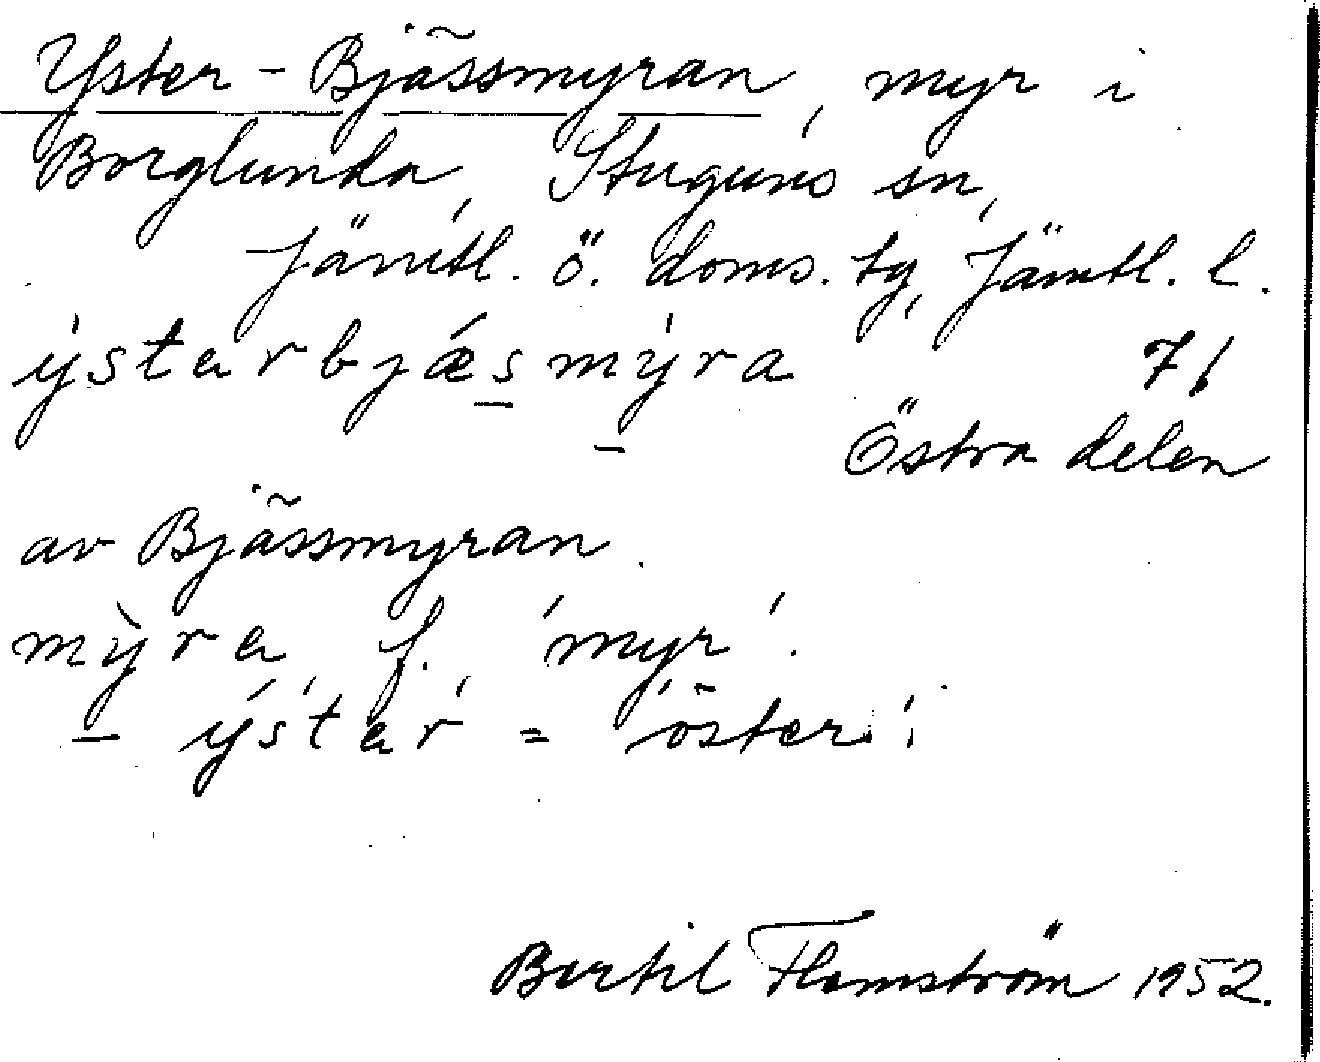 Yster-Bjässmyran, myr i
Borglunda, Stuguns sn,
Jämtl. ö. doms. tg, Jämtl. l.
ýsterbjæ̀smýra 71
Östra delen
av Bjässmyran.
mỳra, f., 'myr'.
- ýster = 'öster';
Bertil Flemström 1952.